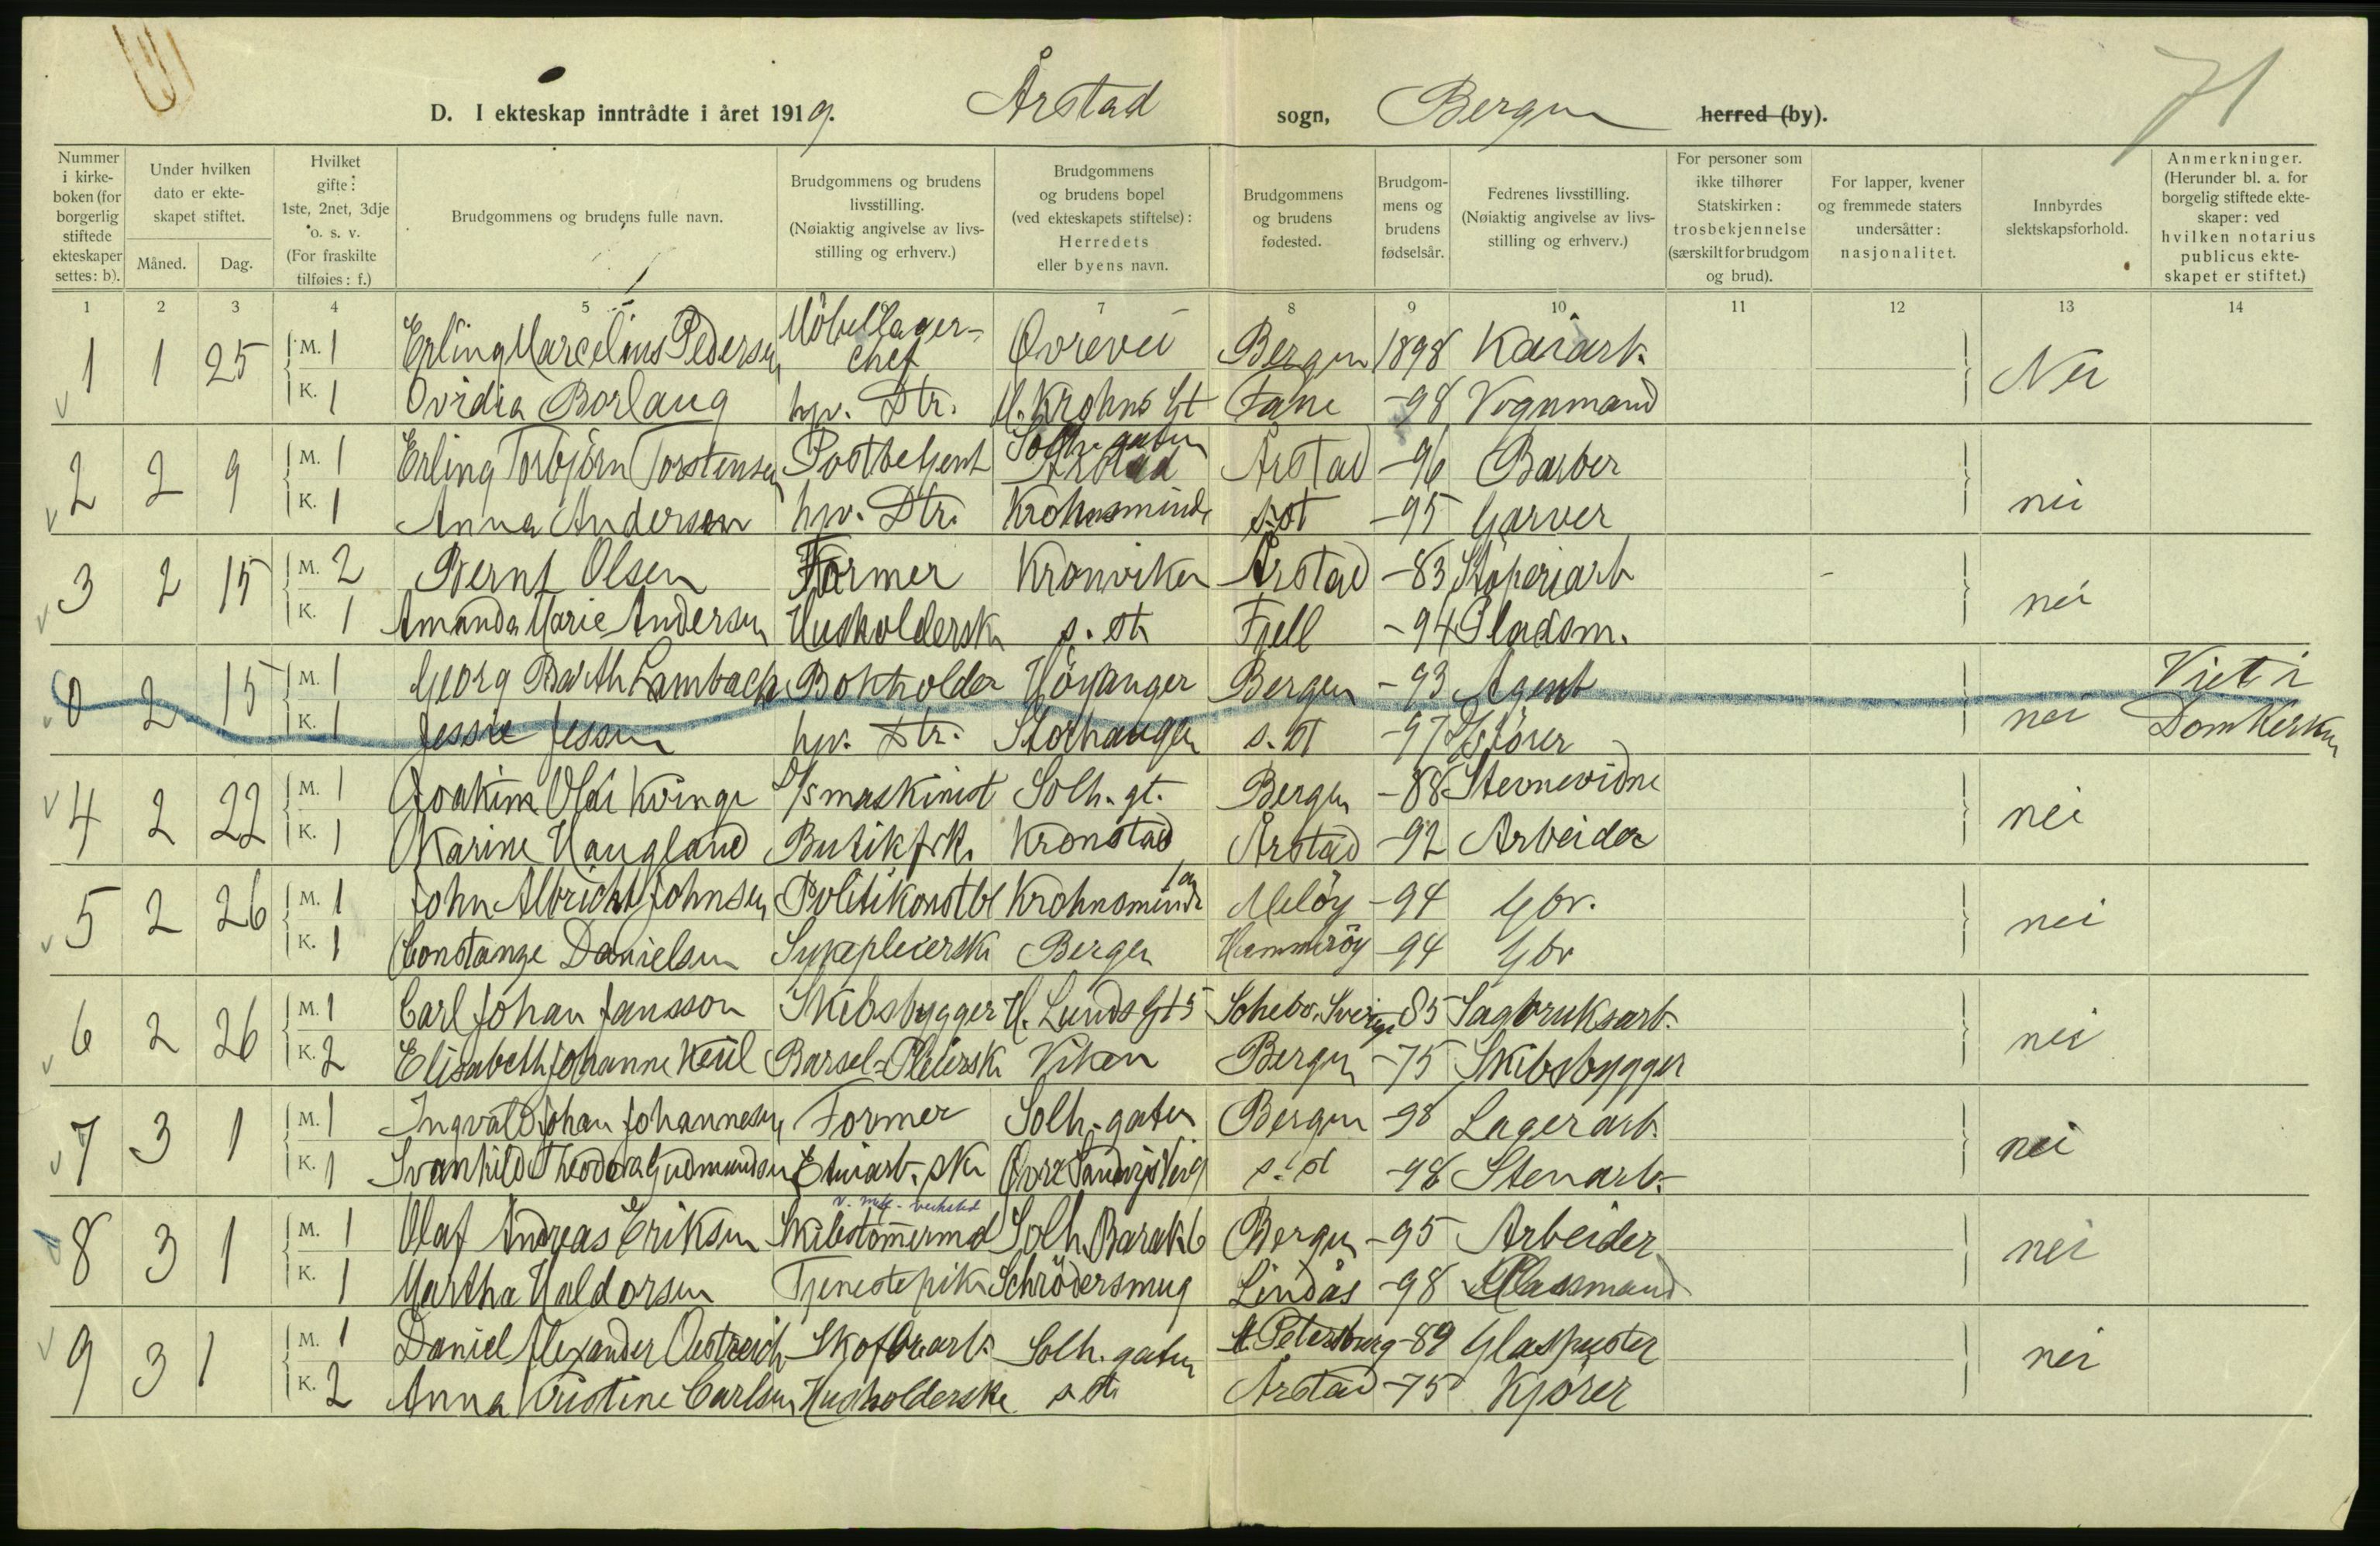 71
D. I ekteskap inntrådte i året 1919. Årstad sogn, Bergen herred (by).
Nummer i kirkeboken (for borgerlig stiftede ekteskaper settes: b).
Under hvilken dato er ekteskapet stiftet.
Måned. Dag.
Hvilket gifte: 1ste, 2net, 3dje o. s. v. (For fraskilte tilføies: f.)
Brudgommens og brudens fulle navn.
Brudgommens og brudens livsstilling. (Nøiaktig angivelse av livsstilling og erhverv.)
Brudgommens og brudens bopel (ved ekteskapets stiftelse): Herredets eller byens navn.
Brudgommens og brudens fødested.
Brudgommens og brudens fødselsår.
Fedrenes livsstilling. (Nøiaktig angivelse av livsstilling og erhverv.)
For personer som ikke tilhører Statskirken: trosbekjennelse (særskilt for brudgom og brud).
For lapper, kvener og fremmede staters undersåtter: nasjonalitet.
Innbyrdes slektskapsforhold.
Anmerkninger. (Herunder bl. a. for borgelig stiftede ekteskaper: ved hvilken notarius publicus ekteskapet er stiftet.)
1 2 3 4 5 6 7 8 9 10 11 12 13 14
1 1 25 M. 1 Erling Marcelius Pedersen Möbellagerchef Øvrevei Bergen 1898 Kaiarb. Nei
K. 1 Ovidia Borlaug hjv. Dtr. M. Krohns Gt Fane -98 Vognmand
2 2 9 M. 1 Erling Torbjörn Torstensen Postbetjent Solh. gaten Årstad Årstad -96 Barber nei
K. 1 Anna Andersen hjv. Dtr. Krohnsminde s. st -95 Garver
3 2 15 M. 2 Bernt Olsen Former Kronviken Årstad -83 Støperiarb nei
K. 1 Amanda Marie Andersen Husholdersk. s. st. Fjell -94 Pladsm.
0 2 15 M. 1 Georg Barth Lambach Bokholder Höyanger Bergen -93 Agent nei Viet i Domkirken
K. 1 Jessie Jessen hjv. Dtr. Storhaugen s. st -97
4 2 22 M. 1 Joakim Olai Kvinge D/S maskinist Solh. gt. Bergen -88 Stevnevidne nei
K. 1 Karine Haugland Butikfrk. Kronstad Årstad -92 Arbeider
5 2 26 M. 1 John Albricht Johnsen Politikonstbl Krohnsminde Melöy -94 Gbr. nei
K. 1 Constanze Danielsen Sykepleiersk. Bergen Hammeröy -94 Gbr
6 2 26 M. 1 Carl Johan Jansson Skibsbygger H. Lunds Gt 5 Schebo. Sverige 85 Sagbruksarb. nei
K. 2 Elisabeth Johanne Keul Barsel-Pleiersk. Viken Bergen -75 Skibsbygger
7 3 1 M. 1 Ingvald Johan Johannesen Former Solh. gaten Bergen -98 Lagerarb. nei
K. 1 Svanhild Theodora Gudmundsen Etuiarb.ske Øvre Sandvigsvei 9 s. st -98 Stenarb.
8 3 1 M. 1 Olaf Andreas Eriksen v. mek. verksted Skibstömmermd Solh. Barak 6 Bergen -95 Arbeider nei
K. 1 Martha Haldorsen Tjenestepike Schrödersmug Lindås -98 Plassmand
9 3 1 M. 1 Daniel Alexander Oestreich Skofbr.arb. Solh. gaten St. Petersburg -89 Glaspuster nei
K. 2 Anna Kristine Carlsen Husholderske s. st. Årstad -75 Kjörer